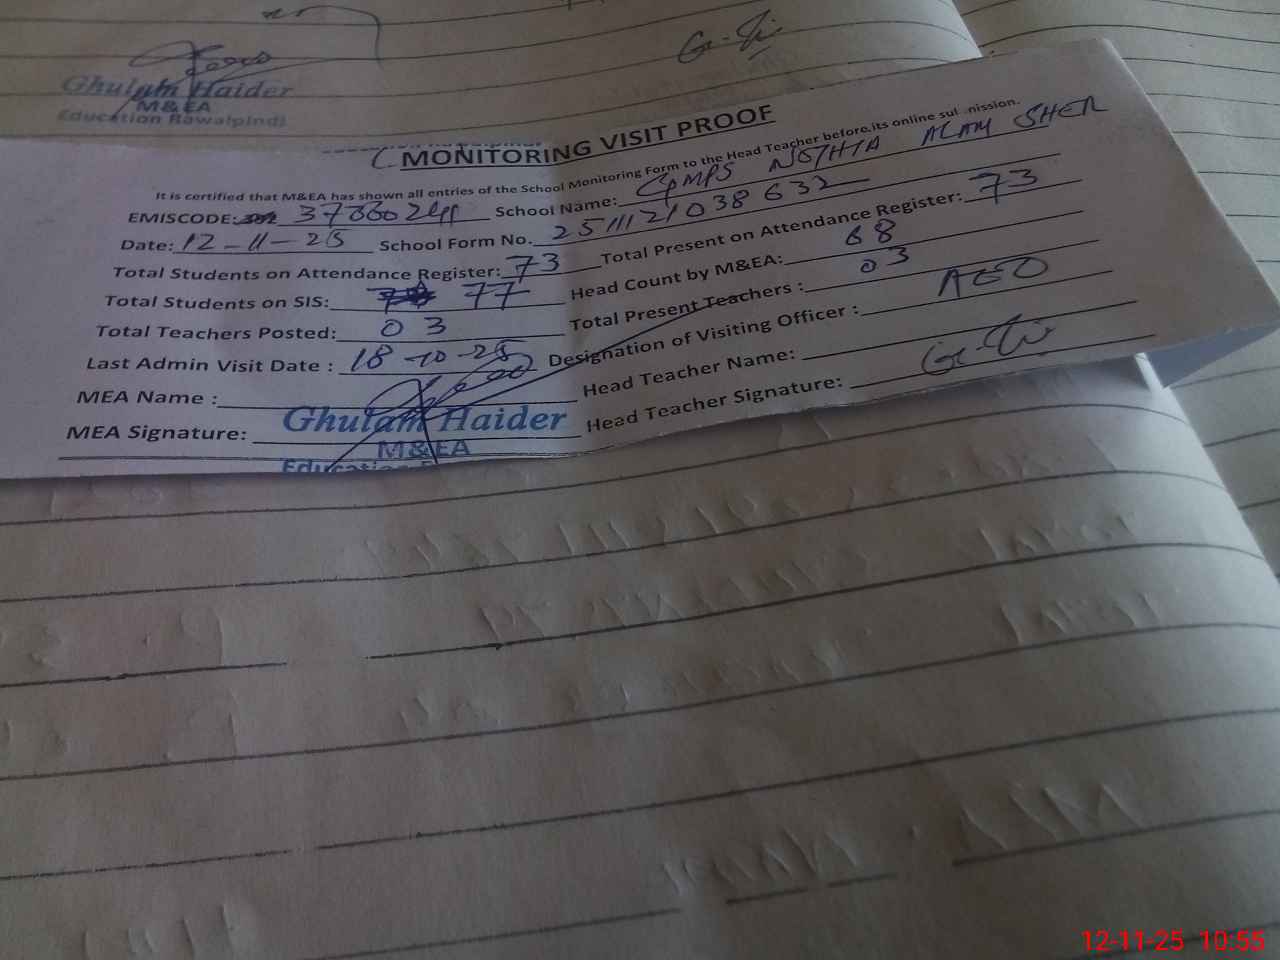 Ghulam Haider
M&EA
Education Rawalpindi
MONITORING VISIT PROOF
It is certified that M&EA has shown all entries of the School Monitoring Form to the Head Teacher before its online sub mission.
EMISCODE: School Name: ALAM SHER
Date: 12-11-25 School Form No. 2511121038632
Total Students on Attendance Register: 73 Total Present on Attendance Register: 73
Total Students on SIS: 77 Head Count by M&EA: 68
Total Teachers Posted: 03 Total Present Teachers : 03
Last Admin Visit Date : 18-10-25 Designation of Visiting Officer : AEO
MEA Name : Head Teacher Name:
MEA Signature: Head Teacher Signature:
Ghulam Haider
M&EA
Education
12-11-25 10:55